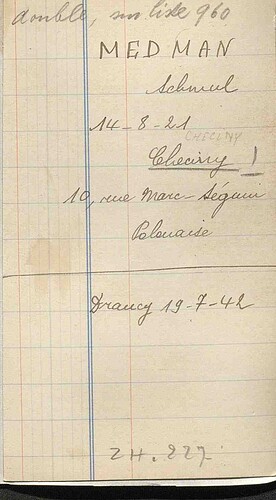 double, sur liste 960
MEDMAN
Schmul
14-8-21
CHECINY
Checiny !
10, rue Marc-Séguin
Polonaise
Drancy 19-7-42
ZH.227